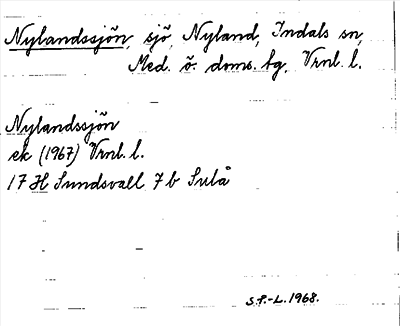 Nylandssjön, sjö, Nyland, Indals sn,
Med. ö. doms. fg, Vrnl. l.
Nylandssjön
ek (1967) Vrnl. l.
17 H Sundsvall 7 b Sulå
S.P.-L. 1968.